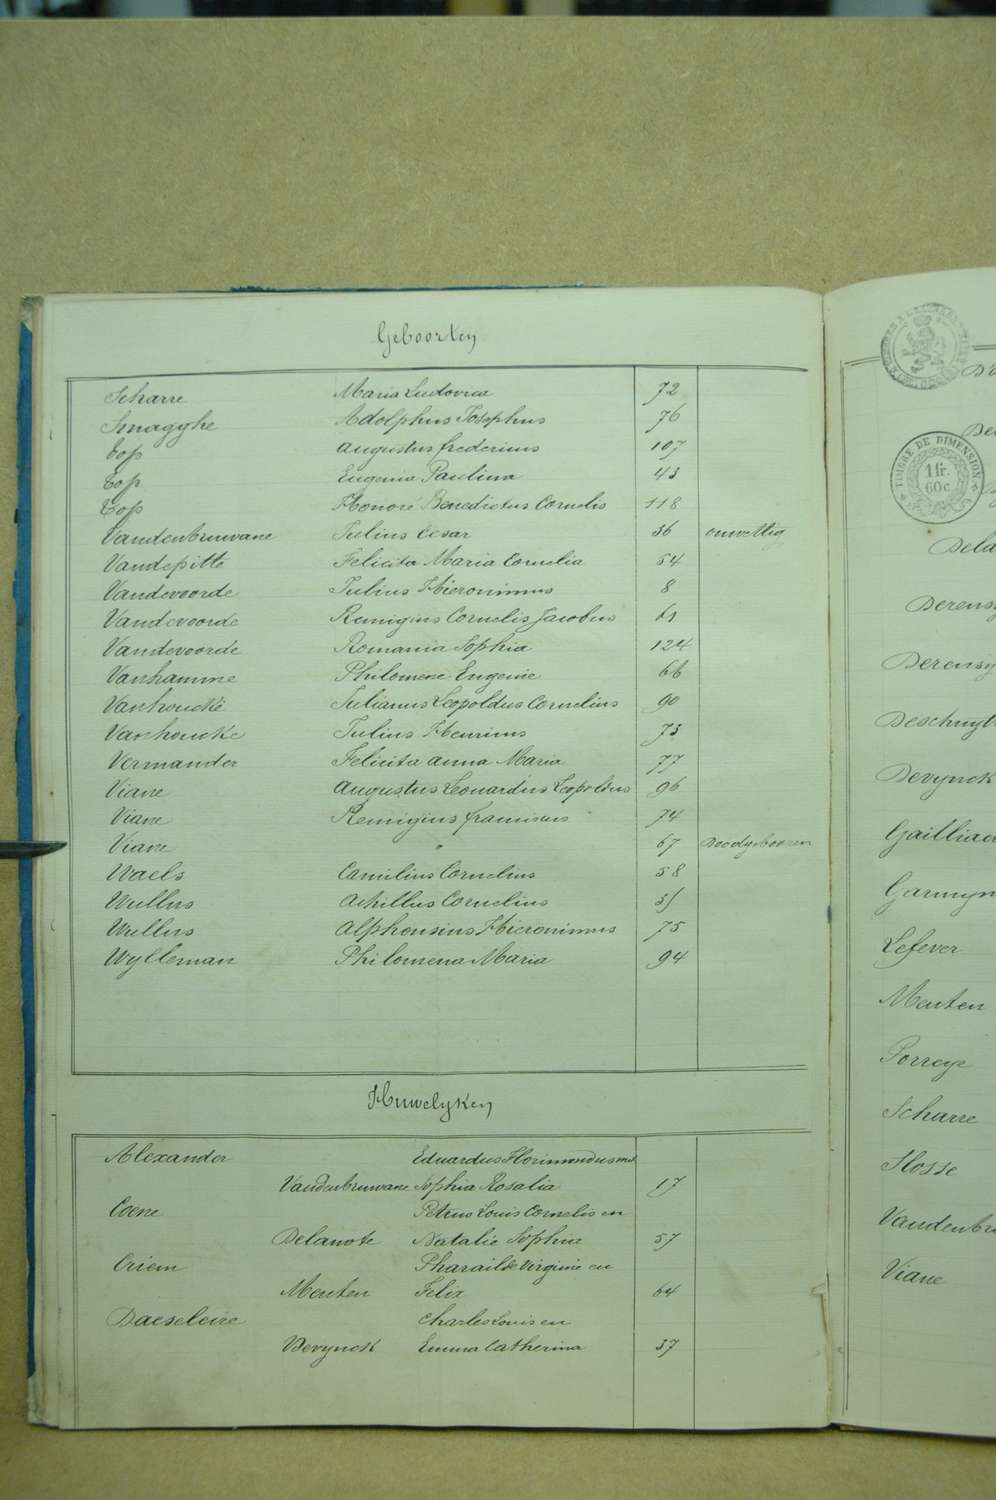 Geboorten
Scharre Maria Ludovica 72
Smagghe Adolphus Josephus 76
Top Augustus fredericus 107
Top Eugenia Paulina 43
Top Honoré Benedictus Cornelis 118
Vandenbruwane Julius Cesar 36 onwettig
Vandepitte Felicita Maria Cornelia 54
Vandevoorde Julius Hieronimus 8
Vandevoorde Remigius Cornelis Jacobus
Vandevoorde Romania Sophia 124
Vanhamme Philomene Eugenie 66
Vanhoucke Julianus Leopoldus Cornelius 90
Vanhoucke Julius Henricus 73
Vermander Felicita Anna Maria 77
Viane Augustus Leonardus Leopoldus 96
Viane Remigius franciscus 74
Viane " 67 Doodgebooren
Waels Camilius Cornelius 58
Wullus Achillus Cornelius 51
Wullus Alphonsius Hieronimus 75
Wylleman Philomena Maria 94
Huwelyken
Alexander Eduardus Florimondus en
Vandenbruwane Sophia Rosalia 17
Coene Petrus Louis Cornelis en
Delanote Natalie Sophie 57
Criem Pharailde Virginie en
Menten Felix 64
Daeseleire Charles Louis en
Devynck Emma Catherina 37
TIMBRE DE DIMENSION
1 fr.
60 c.
Dela
Derensy
Derensy
Deschuyt
Devynck
Gailliae
Garmyn
Lefever
Menten
Porreye
Scharre
Slosse
Vandenbru
Viane